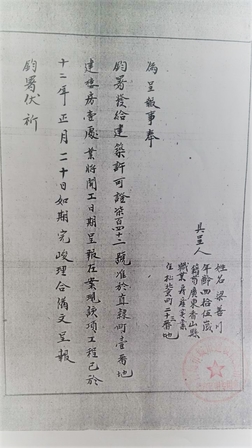 具呈人
姓名 梁善川
年齡 四拾伍歲
籍貫 廣東香山縣
職業
為呈報事奉
鈞署發給建築許可證柒百四十二號准於直隸町壹番地
建築房壹處業將開工日期呈報在案現該項工程已於
十二年正月二十日如期完竣理合備文呈報
鈞署伏祈